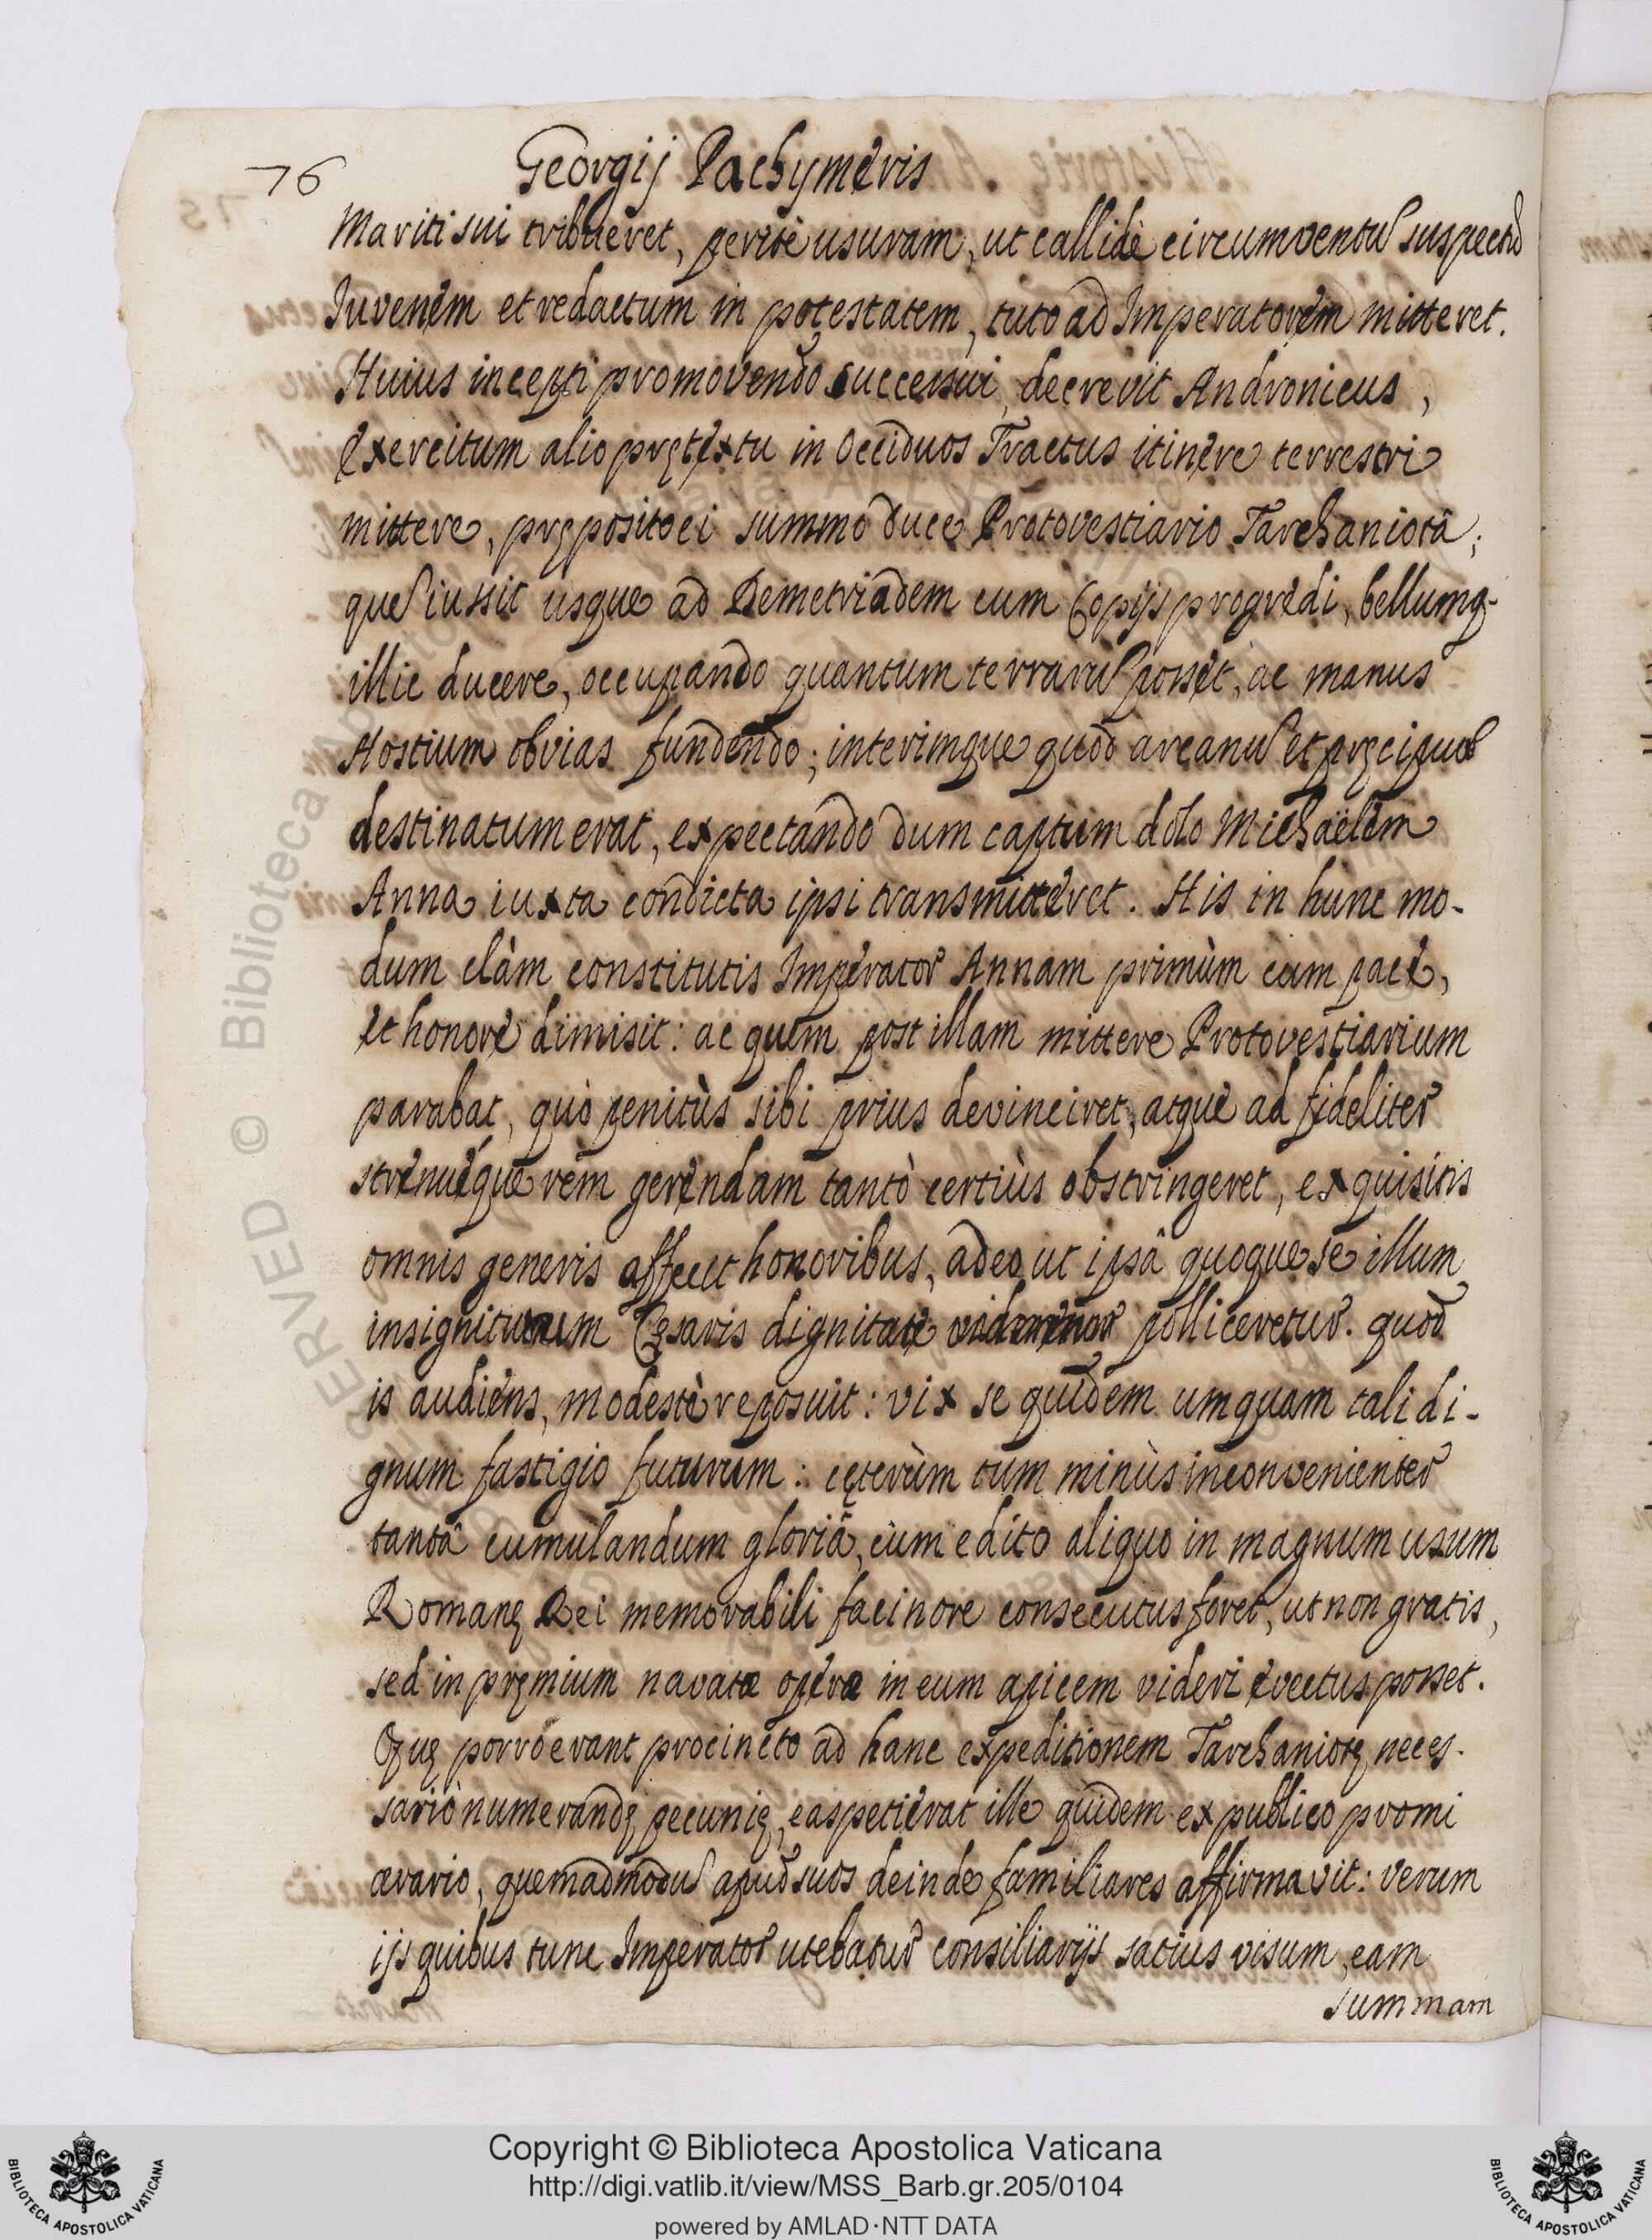 76
Georgij Pachymeris
Mariti sui tribueret, peritè usuram, ut callidè circumventũ suspectũ
Iuvenem et redactum in potestatem, tuto ad Imperatorem mitteret.
Huius incepti promovendo successui, decrevit Andronicus,
exercitum alio prętextu in Occiduos Tractus itinere terrestri
mittere, pręposito ei summo duce Protovestiario Tarchaniotâ;
quẽ iussit usque ad Demetriadem cum Copijs progredi, bellumq.
illic ducere, occupando quantum terrarũ posset, ac manus
Hostium obvias fundendo; interimque quod arcanũ et pręcipuũ
destinatum erat, expectando dum captum dolo Michaëlem
Anna iuxta condicta ipsi transmitteret. His in hunc mo-
dum clàm constitutis Imperator Annam primùm cum pace,
et honore dimisit: ac quem post illam mittere Protovestiarium
parabat, quò penitùs sibi prius devinciret, atque ad fideliter
strenuéque rem gerendam tantò certiùs obstringeret, exquisitis
omnis generis affecit honoribus, adeo ut ipsâ quoque se illum
insigniturum Cęsaris dignitate polliceretur. quod
is audiens, modestè reposuit: vix se quidem umquam tali di-
gnum fastigio futurum: cęterùm tum minùs inconvenienter
tantâ cumulandum gloriâ, cùm edito aliquo in magnum usum
Romanę Rei memorabili facinore consecutus foret, ut non gratis,
sed in pręmium navatæ operæ in eum apicem videri evectus posset.
Quę porrò erant procincto ad hanc expeditionem Tarchaniotę neces-
sariò numerandę pecunię, eas petierat ille quidem ex publico promi
ærario, quemadmodũ apud suos deinde familiares affirmavit: verum
ijs quibus tunc Imperator utebatur consiliarijs satius visum, eam
summam
Copyright © Biblioteca Apostolica Vaticana
http://digi.vatlib.it/view/MSS_Barb.gr.205/0104
powered by AMLAD·NTT DATA
BIBLIOTECA APOSTOLICA VATICANA
BIBLIOTECA APOSTOLICA VATICANA